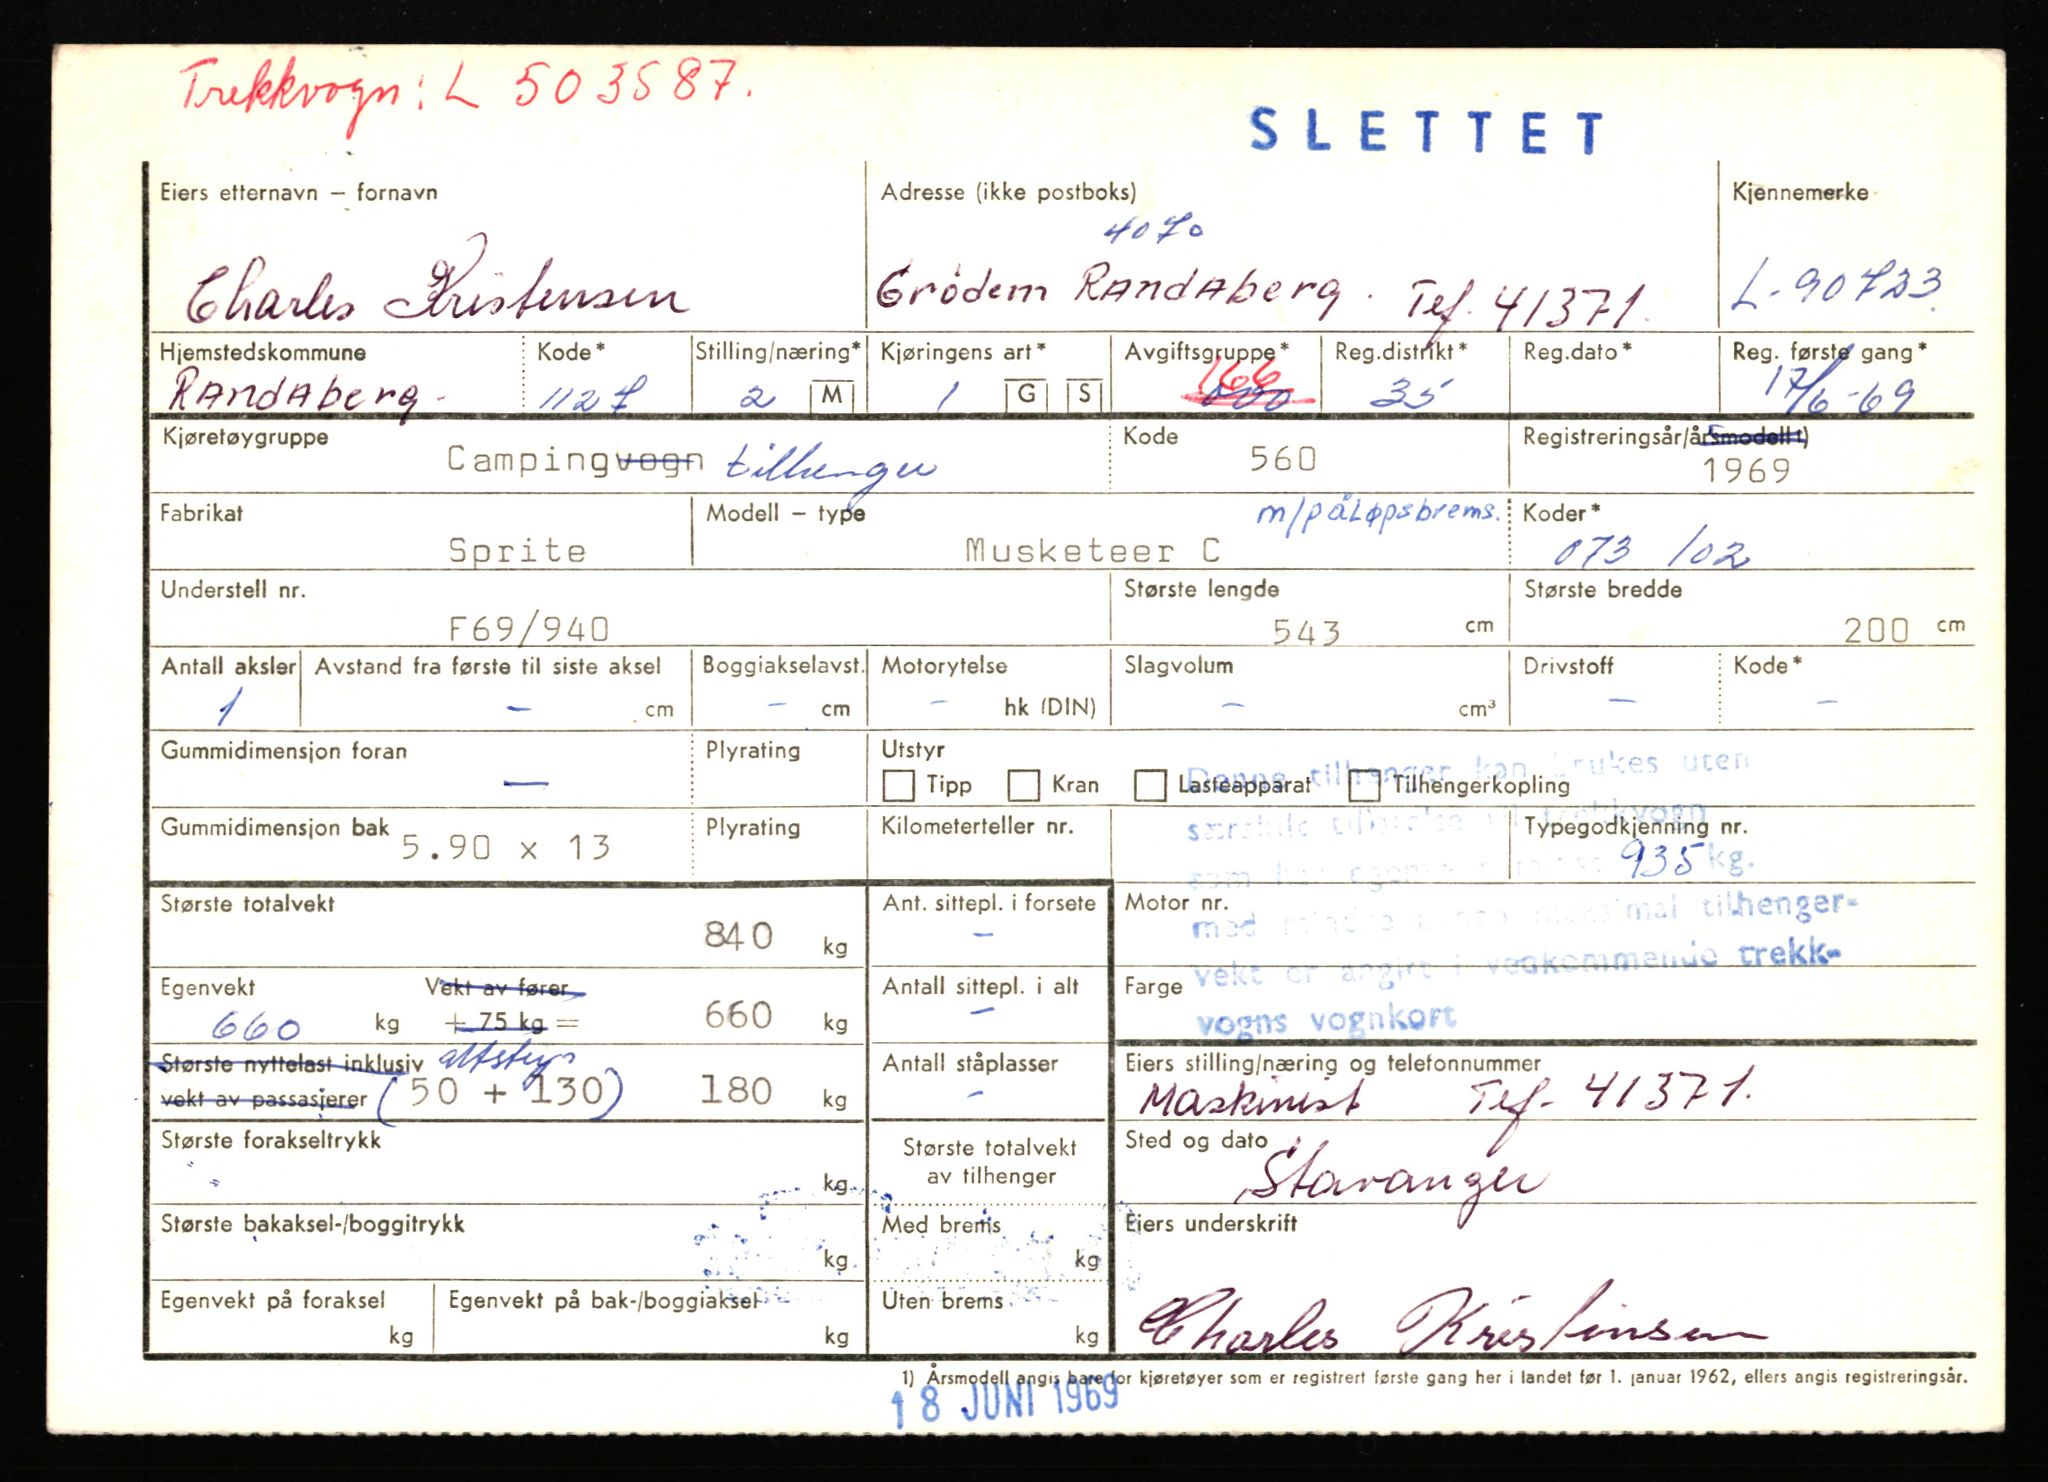 Trekkvogn: L 503587.
SLETTET
Eiers etternavn – fornavn
Adresse (ikke postboks)
Kjennemerke
4070
Charles Kristensen
Grödem Randaberg. Tef. 41371.
L-90723
Hjemstedskommune
Kode*
Stilling/næring*
Kjøringens art*
Avgiftsgruppe*
Reg.distrikt*
Reg.dato*
Reg. første gang*
Randaberg.
1127
2 M
1 G S
166
35
17/6-69
Kjøretøygruppe
Kode
Registreringsår/årsmodell 1)
Campingvogn tilhenger
560
1969
Fabrikat
Modell – type
m/påløpsbrems.
Koder*
Sprite
Musketeer C
073 /02
Understell nr.
Største lengde
Største bredde
F69/940
543 cm
200 cm
Antall aksler
Avstand fra første til siste aksel
Boggiakselavst.
Motorytelse
Slagvolum
Drivstoff
Kode*
1
– cm
– cm
– hk (DIN)
– cm³
–
–
Gummidimensjon foran
Plyrating
Utstyr
–
Tipp
Kran
Lasteapparat
Tilhengerkopling
Denne tilhenger kan brukes uten
Gummidimensjon bak
5.90 x 13
Plyrating
Kilometerteller nr.
Typegodkjenning nr.
særskilt tillatelse til trekkvogn
935 kg.
Største totalvekt
840 kg
Ant. sittepl. i forsete
–
Motor nr.
med mindre annen maksimal tilhenger-
vekt er angitt i vedkommende trekk-
vogns vognkort
Egenvekt
Vekt av fører
660 kg + 75 kg =
660 kg
Antall sittepl. i alt
–
Farge
Største nyttelast inklusiv
vekt av passasjerer
(50 + 130)
180 kg
Antall ståplasser
–
Eiers stilling/næring og telefonnummer
Maskinist Tef- 41371.
Største forakseltrykk
kg
Største totalvekt
av tilhenger
Sted og dato
Stavanger
Største bakaksel-/boggitrykk
kg
Med brems
kg
Eiers underskrift
Egenvekt på foraksel
kg
Egenvekt på bak-/boggiaksel
kg
Uten brems
kg
Charles Kristensen
1) Årsmodell angis bare for kjøretøyer som er registrert første gang her i landet før 1. januar 1962, ellers angis registreringsår.
18 JUNI 1969